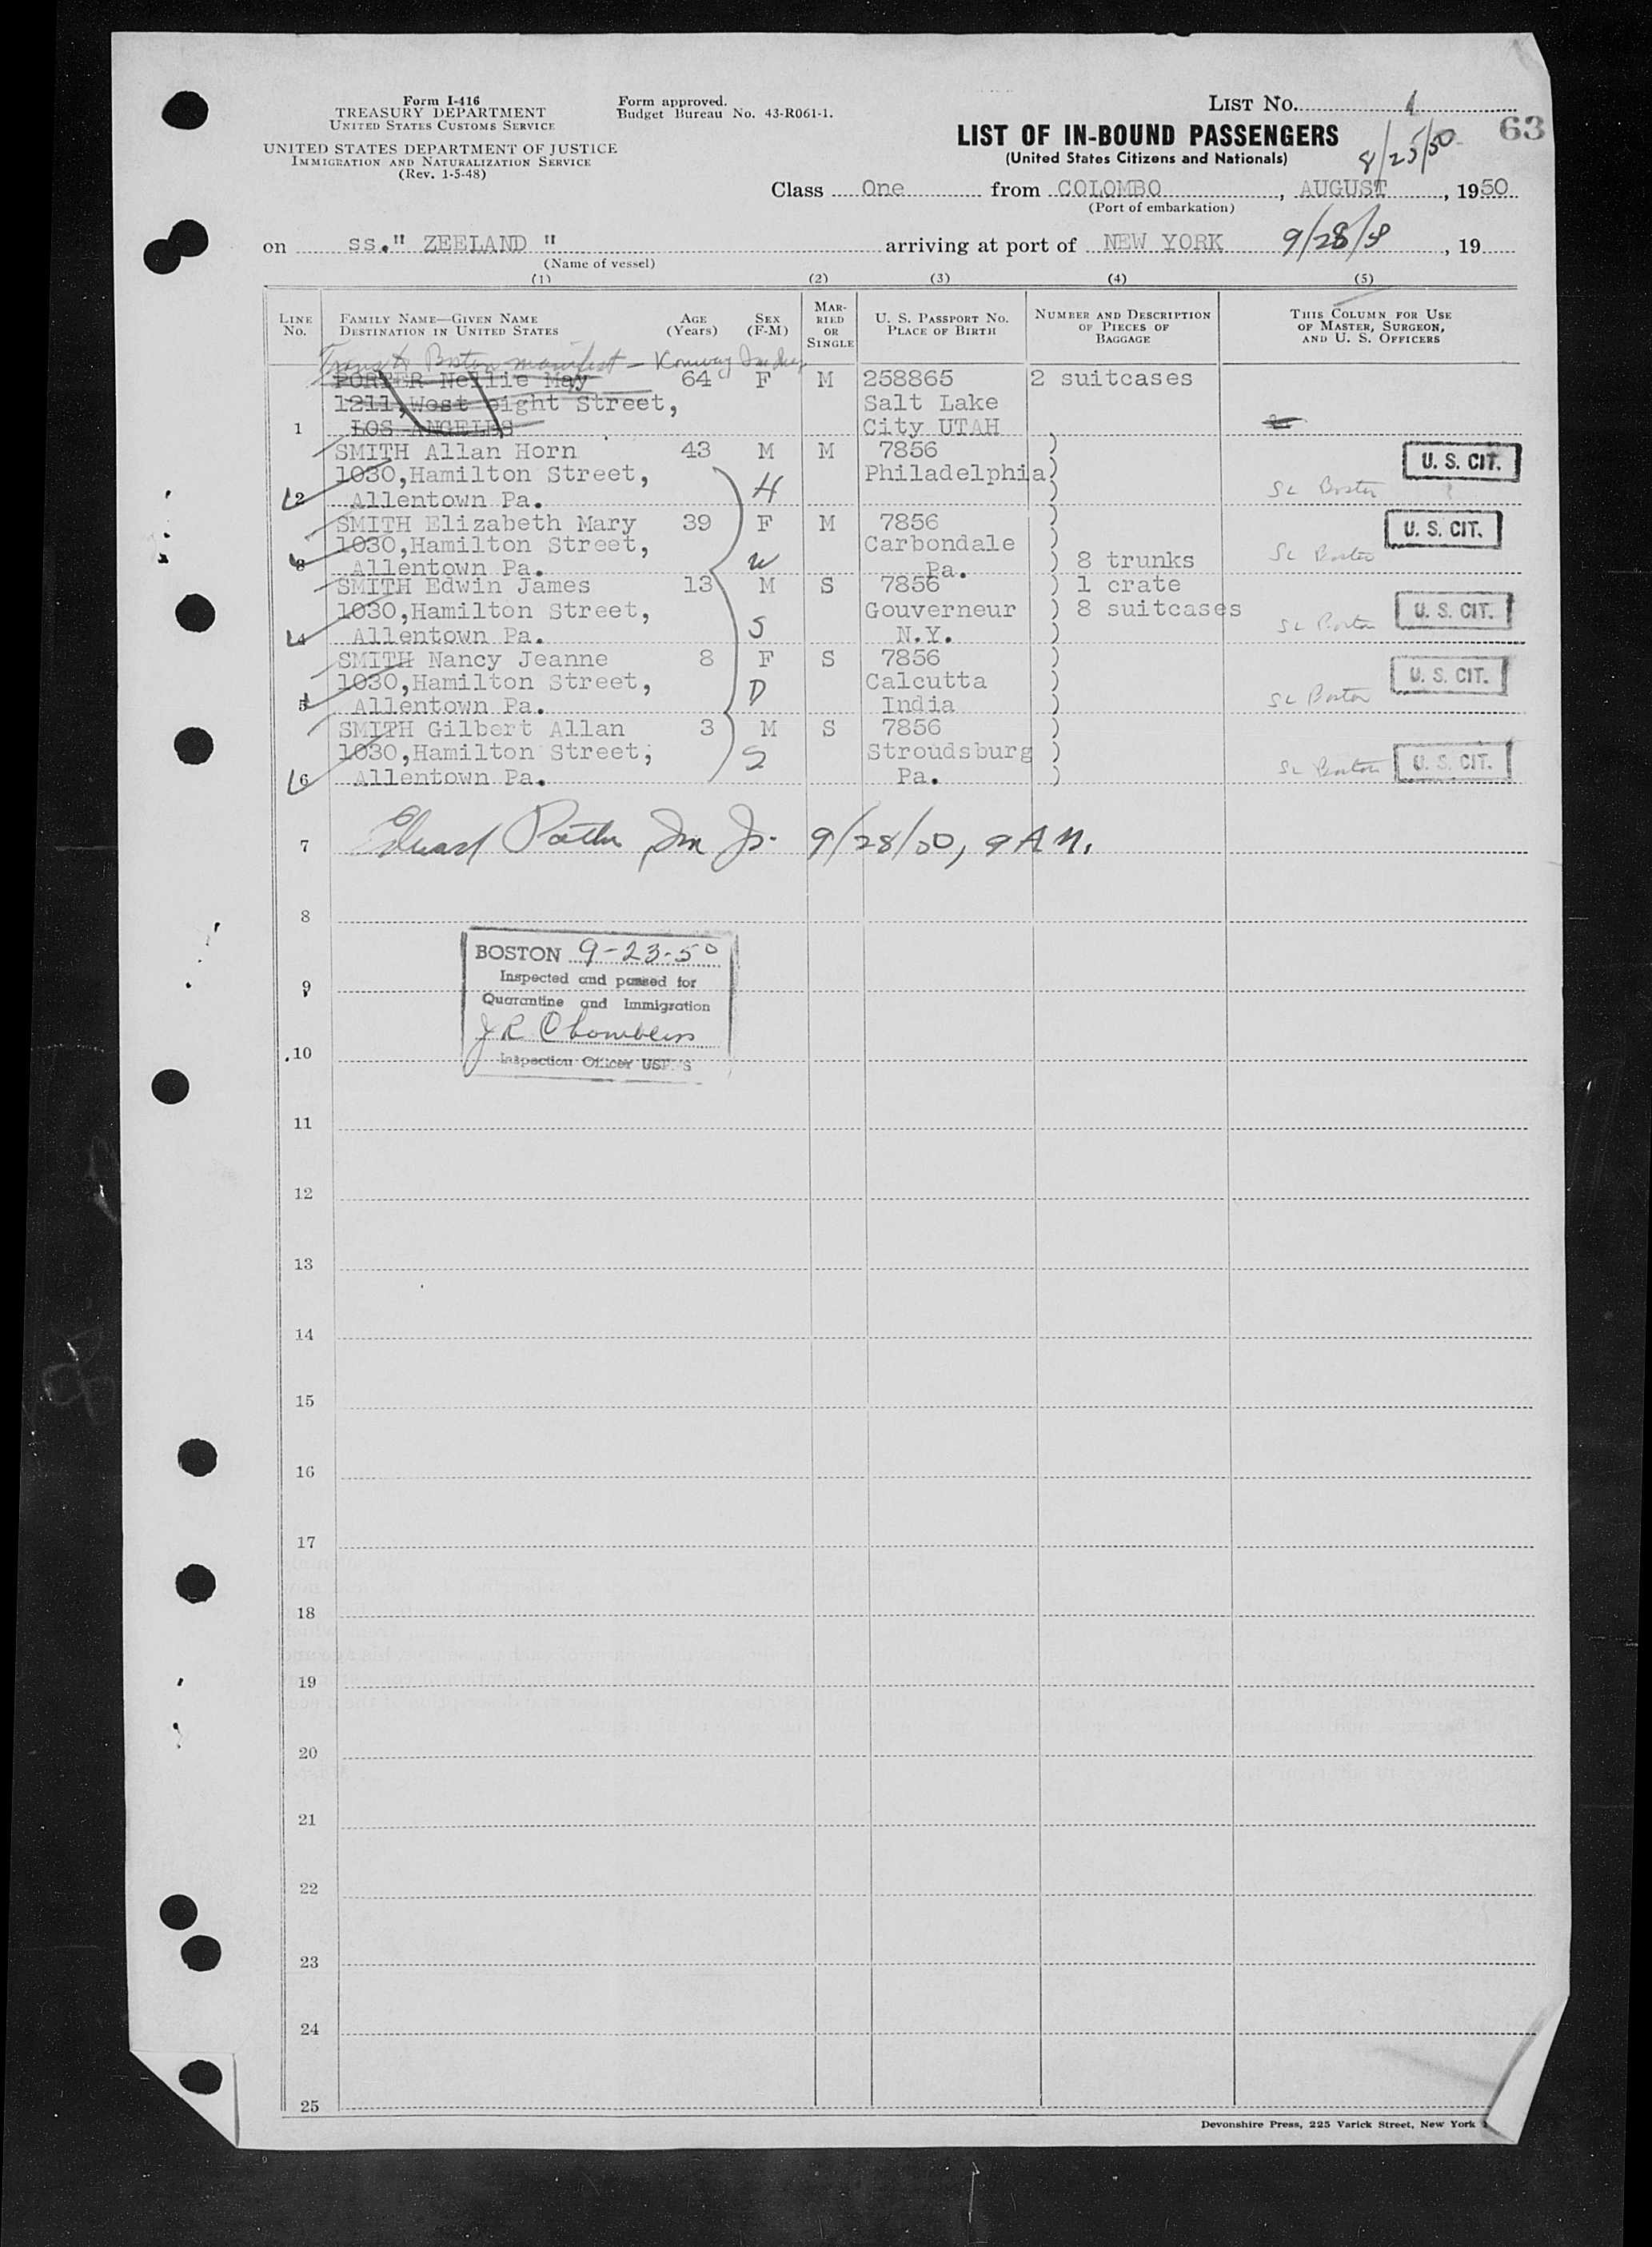 Form I-416
TREASURY DEPARTMENT
UNITED STATES CUSTOMS SERVICE
UNITED STATES DEPARTMENT OF JUSTICE
IMMIGRATION AND NATURALIZATION SERVICE
(Rev. 1-5-48)
Form approved.
Budget Bureau No. 43-R061-1.
LIST NO. 1
63
LIST OF IN-BOUND PASSENGERS
(United States Citizens and Nationals)
8/25/50
Class One from COLOMBO, AUGUST, 1950
(Port of embarkation)
on ss." ZEELAND " arriving at port of NEW YORK 9/28/50, 19
(Name of vessel)
(1) (2) (3) (4) (5)
LINE NO. FAMILY NAME—GIVEN NAME DESTINATION IN UNITED STATES AGE (Years) SEX (F-M) MARRIED OR SINGLE U. S. PASSPORT NO. PLACE OF BIRTH NUMBER AND DESCRIPTION OF PIECES OF BAGGAGE THIS COLUMN FOR USE OF MASTER, SURGEON, AND U. S. OFFICERS
Boston manifest —
PORTER Nellie May 64 F M 258865 2 suitcases
1211,West eight Street, Salt Lake
1 LOS ANGELES City UTAH
SMITH Allan Horn 43 M M 7856 ) U. S. CIT.
1030,Hamilton Street, H Philadelphia)
2 Allentown Pa. ) Boston
SMITH Elizabeth Mary 39 F M 7856 ) U. S. CIT.
1030,Hamilton Street, Carbondale )
3 Allentown Pa. W Pa. ) 8 trunks Boston
SMITH Edwin James 13 M S 7856 ) 1 crate
1030,Hamilton Street, Gouverneur ) 8 suitcases U. S. CIT.
4 Allentown Pa. S N.Y. ) Boston
SMITH Nancy Jeanne 8 F S 7856 )
1030,Hamilton Street, D Calcutta ) U. S. CIT.
5 Allentown Pa. India ) Boston
SMITH Gilbert Allan 3 M S 7856 )
1030,Hamilton Street, S Stroudsburg )
6 Allentown Pa. Pa. ) Boston U. S. CIT.
7 Edward 9/28/50, 9 AM.
8
BOSTON 9-23-50
Inspected and passed for
9
Quarantine and Immigration
J R Chambers
10
Inspection Officer USPHS
11
12
13
14
15
16
17
18
19
20
21
22
23
24
25
Devonshire Press, 225 Varick Street, New York